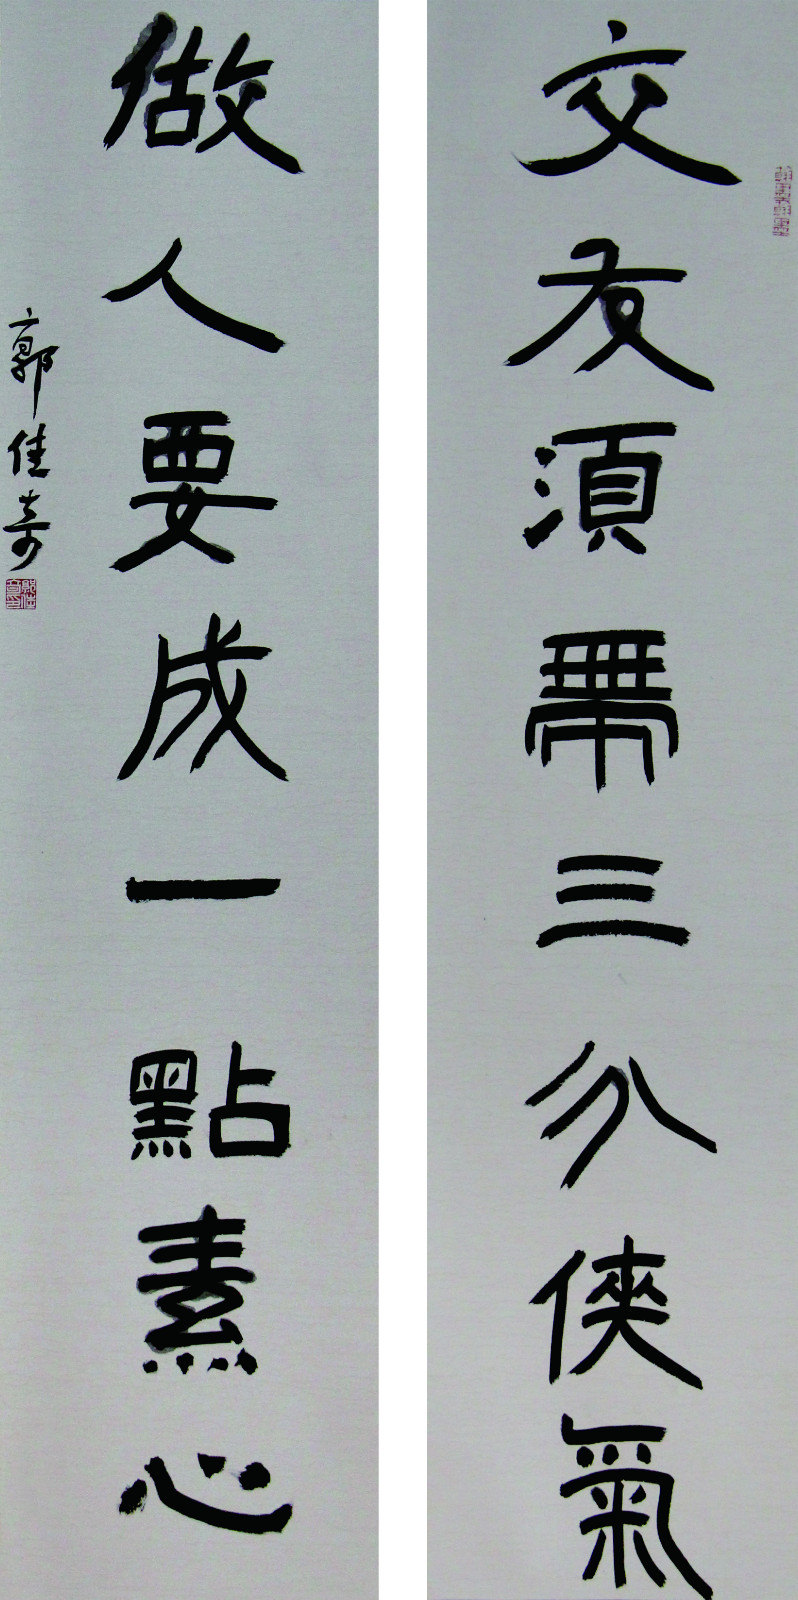 交友須帶三分俠氣
做人要成一點素心
郭佳奇